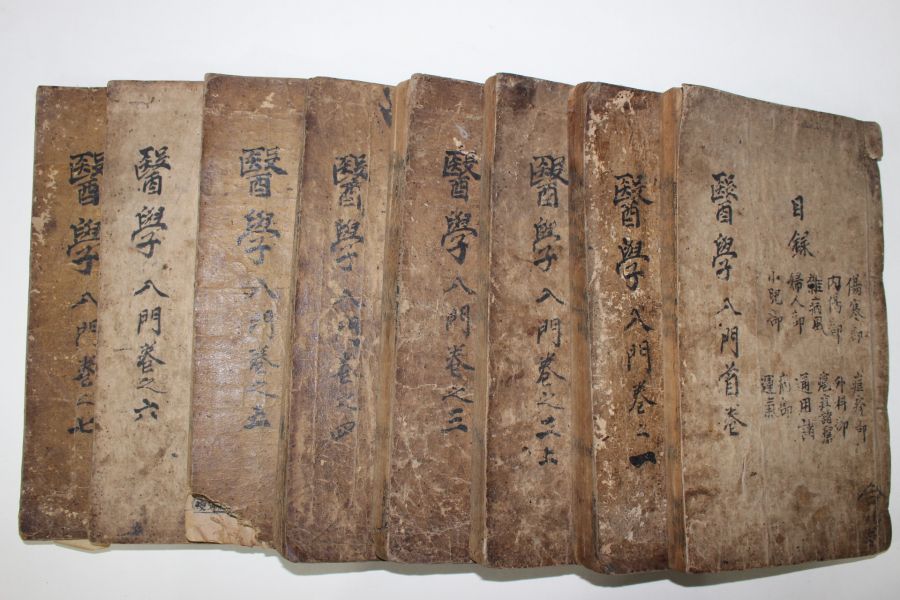 目錄
傷寒部
內傷部
雜病風
婦人部
小兒部
痘疹部
外科部
通用諸
運氣
醫學入門首卷
醫學入門卷之一
醫學入門卷之二上
醫學入門卷之三
醫學入門卷之四
醫學入門卷之五
醫學入門卷之六
醫學入門卷之七